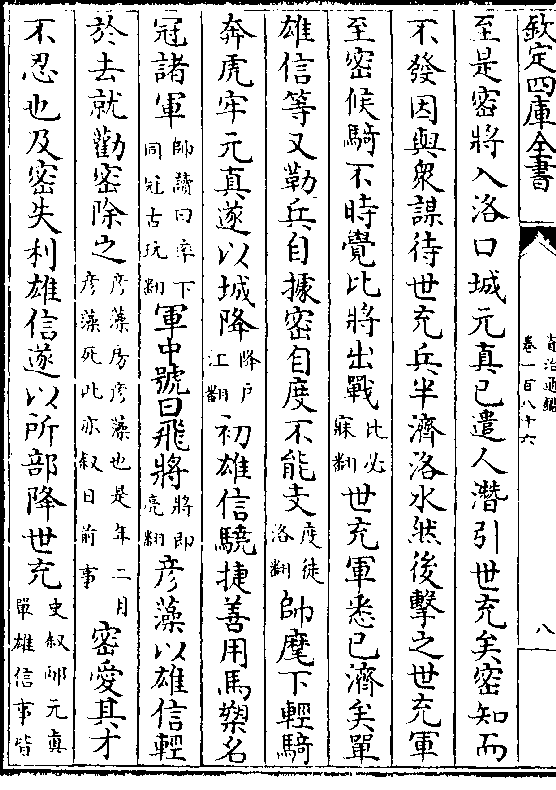 欽定四庫全書
資治通鑑
卷一百八十六
八
至是密將入洛口城元真已遣人潛引世充矣密知而
不發因與衆謀待世充兵半濟洛水然後擊之世充軍
至密候騎不時覺比將出戰比必寐翻世充軍悉已濟矣單
雄信等又勒兵自據密自度不能支度徒洛翻帥麾下輕騎
奔虎牢元真遂以城降降戶江翻初雄信驍捷善用馬槊名
冠諸軍帥讀曰率下同冠古玩翻軍中號曰飛將將即亮翻彦藻以雄信輕
於去就勸密除之彦藻房彦藻也是年二月彦藻死此亦叙日前事密愛其才
不忍也及密失利雄信遂以所部降世充史叙邴元真單雄信事皆